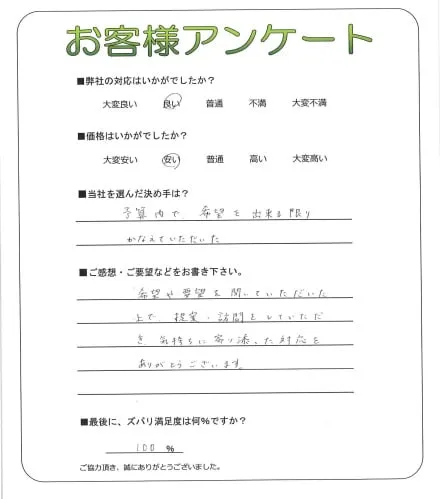 お客様アンケート
■弊社の対応はいかがでしたか?
大変良い 良い 普通 不満 大変不満
■価格はいかがでしたか?
大変安い 安い 普通 高い 大変高い
■当社を選んだ決め手は?
予算内で、希望を出来る限り
かなえていただいた
■ご感想・ご要望などをお書き下さい。
希望や要望を聞いていただいた
上で、提案・訪問をしていただ
き、気持ちに寄り添った対応を
ありがとうございます。
■最後に、ズバリ満足度は何%ですか?
100 %
ご協力頂き、誠にありがとうございました。